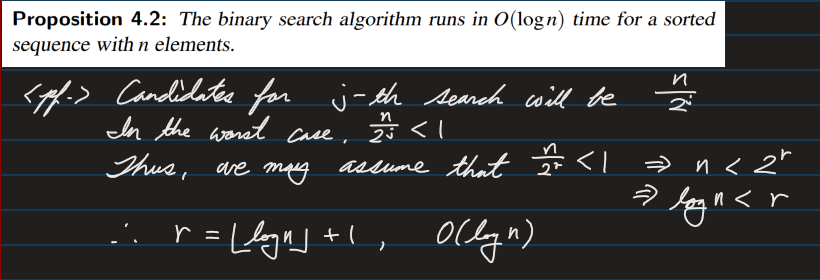 Proposition 4.2: The binary search algorithm runs in O(log n) time for a sorted
sequence with n elements.
<pf.> Candidates for j-th search will be n/2^j
In the worst case, n/2^j < 1
Thus, we may assume that n/2^r < 1 ⇒ n < 2^r
⇒ log n < r
∴ r = ⌊log n⌋ + 1 , O(log n)